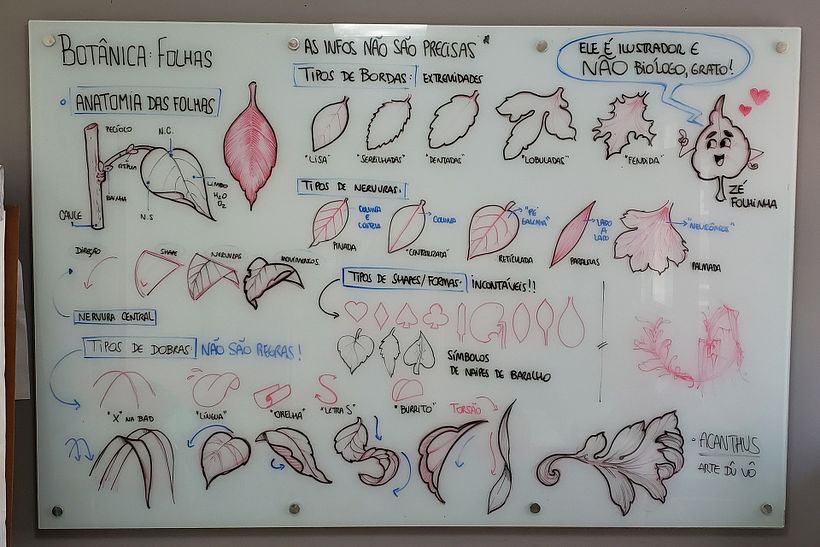 BOTÂNICA: FOLHAS
AS INFOS NÃO SÃO PRECISAS*
ELE É ILUSTRADOR E
NÃO BIÓLOGO, GRATO!
ANATOMIA DAS FOLHAS
PECÍOLO
N.C.
BAINHA
LIMBO
H₂O
O₂
N.S
CAULE
TIPOS DE BORDAS: EXTREMIDADES
"LISA" "SERRILHADAS" "DENTADAS" "LOBULADAS" "FENDIDA"
ZÉ
FOLHINHA
TIPOS DE NERVURAS:
COLUNA
E
COSTELA
COLUNA
"PÉ
GALINHA"
LADO
A
LADO
"NEURÔNIOS"
PINADA "CENTRALIZADA" RETÍCULADA PARALELAS PALMADA
DIREÇÃO SHAPE NERVURAS MOVIMENTOS
NERVURA CENTRAL
TIPOS DE SHAPES/FORMAS: INCONTÁVEIS!!
SÍMBOLOS
DE NAIPES DE BARALHO
TIPOS DE DOBRAS NÃO SÃO REGRAS!
"X" NA BAD "LÍNGUA" "ORELHA" "LETRA S" "BURRITO" TORSÃO
ACANTHUS
ARTE DÛ VÔ